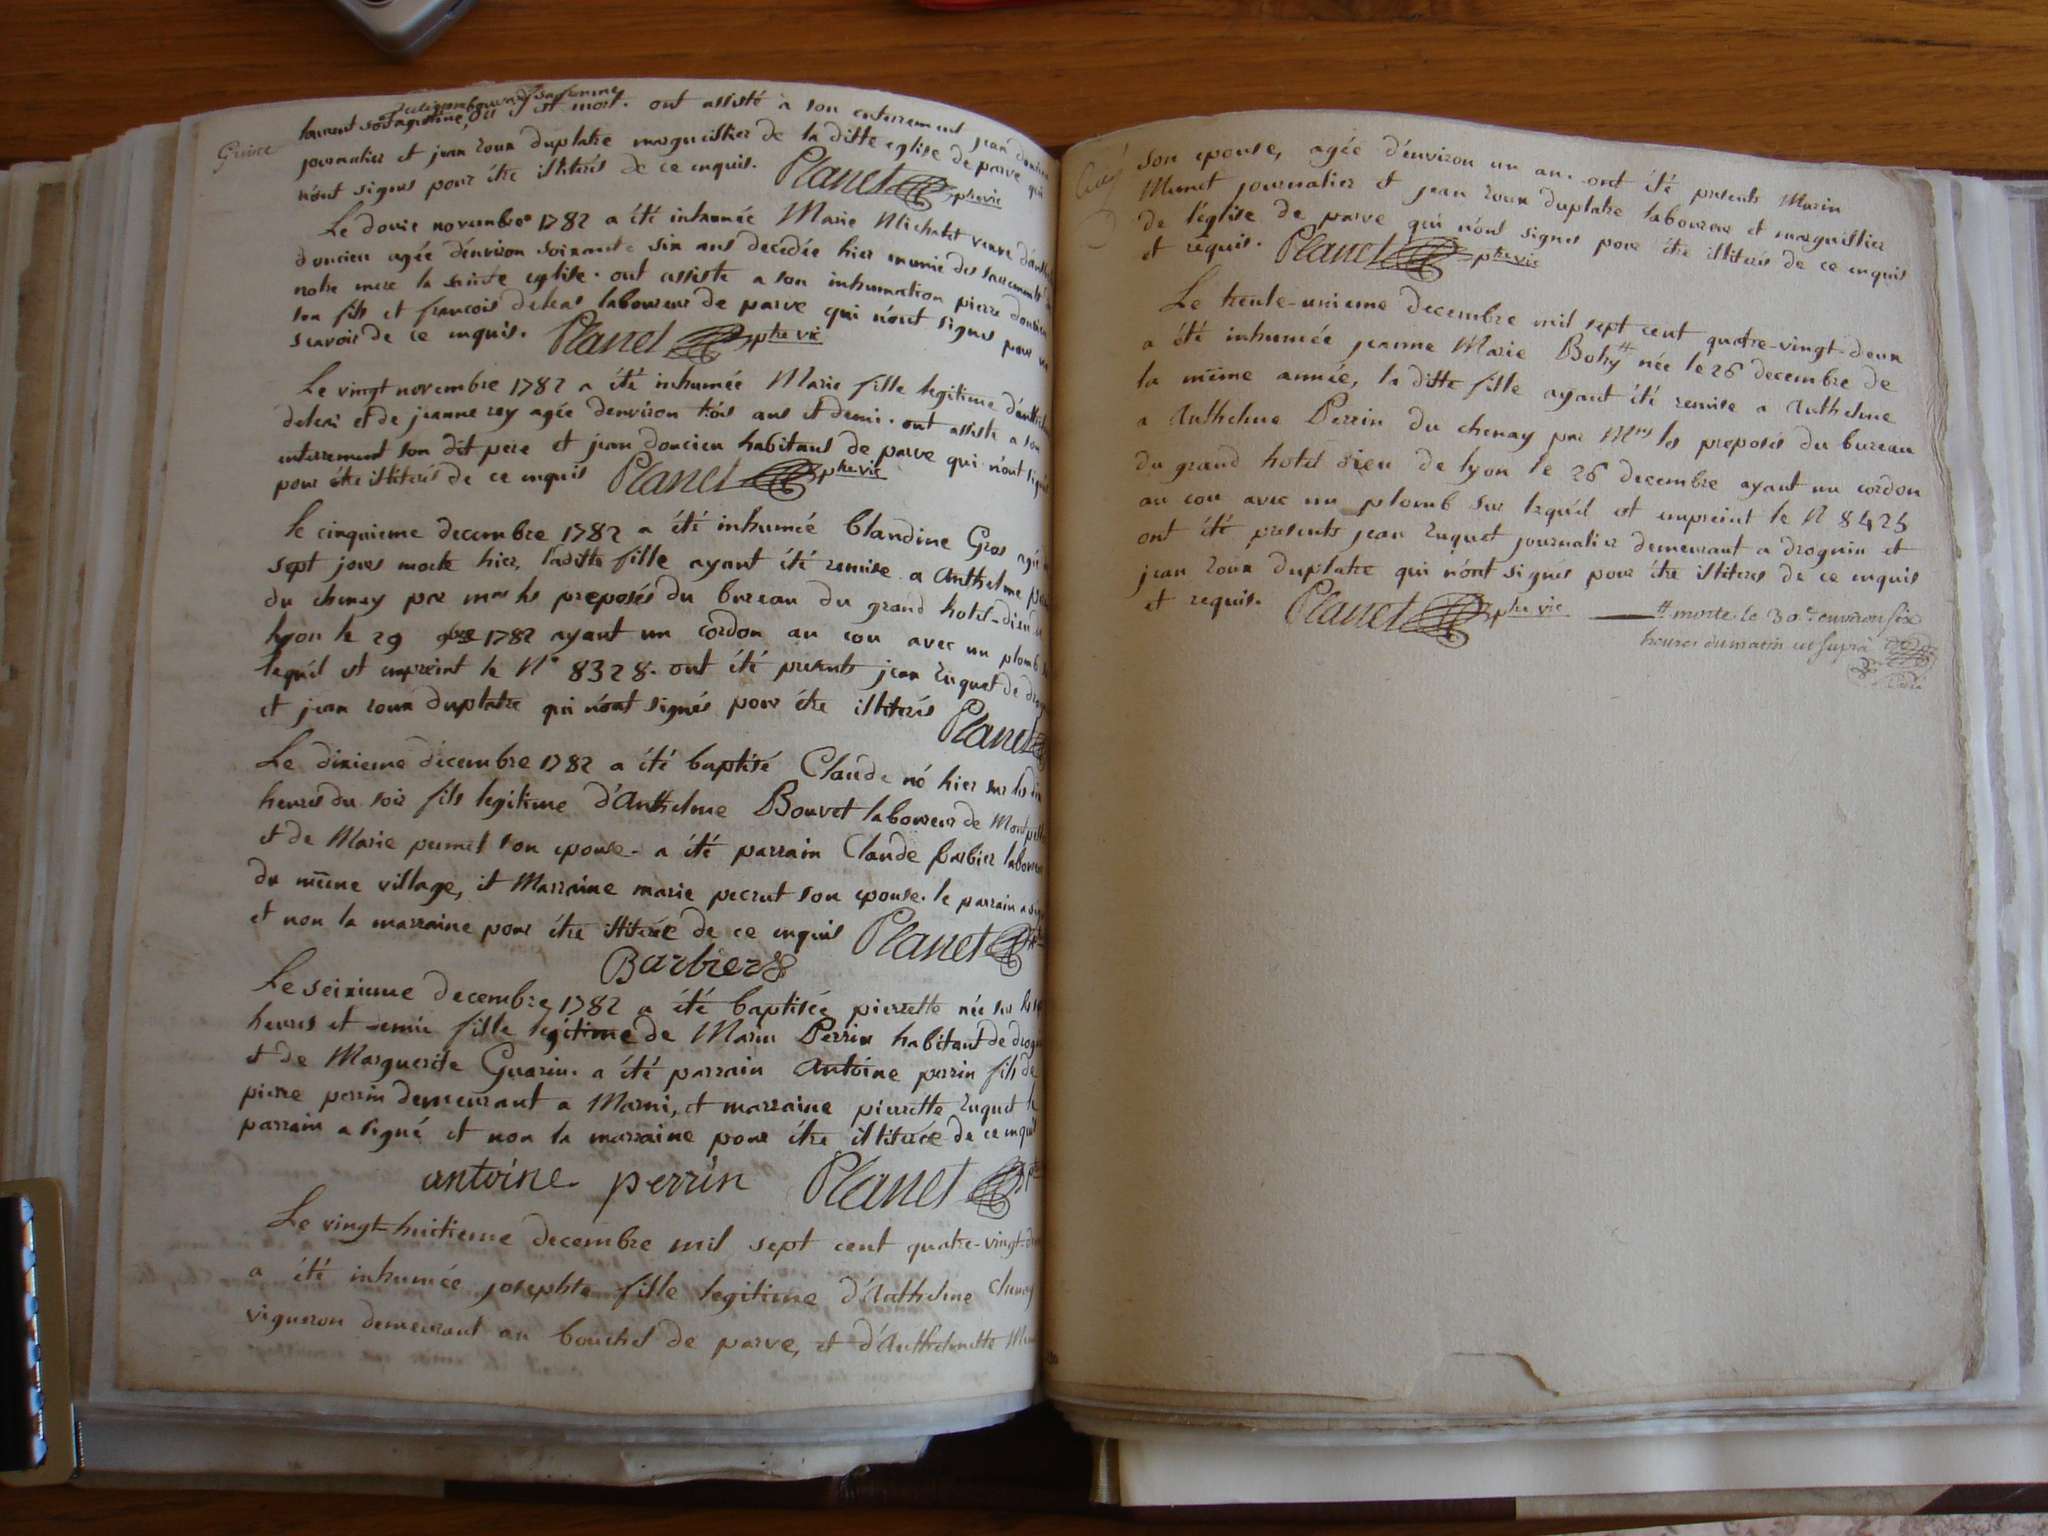 est mort. ont assisté à son enterrement jean
journalier et jean roux duplatre marguillier de la ditte eglise de parve qui
n'ont signes pour étre illiterés de ce enquis. Planet ptre vic
Le douze novembre 1782 a été inhumée Marie Michalet veuve
doncieu agée d'environ soixante six ans decédée hier munie des sacrements
notre mere la sainte eglise. ont assisté a son inhumation pierre doncieu
son fils et francois deleas laboureur de parve qui n'ont signes pour ne
scavoir de ce enquis. Planet ptre vic
Le vingt novembre 1782 a été inhumée Marie fille legitime
et de jeanne rey agée denviron trois ans et demi. ont assisté a son
enterrement son dit pere et jean doncieu habitans de parve qui n'ont signé
pour étre illiterés de ce enquis Planet ptre vic
le cinquieme decembre 1782 a été inhumée blandine Gros agée
sept jours morte hier, laditte fille ayant été remise a Anthelme
du chenay par mrs les preposés du bureau du grand hotel-dieu
lyon le 29 9bre 1782 ayant un cordon au cou avec un plomb
lequel est empreint le N° 8328. ont été presents jean ruquet de
et jean roux duplatre qui n'ont signés pour étre illiterés Planet
Le dixieme décembre 1782 a été baptisé Claude né hier sur les dix
heures du soir fils legitime d'Anthelme Bouvet laboureur de
et de Marie son epouse. a été parrain Claude barbier
du même village, et Marraine marie son epouse. le parrain a
et non la marraine pour étre illiterée de ce enquis Planet
Barbier
Le seizieme decembre 1782 a été baptisée pierrette née sur les
heures et demie fille legitime de Marin Perrin habitant de
et de Marguerite Guarin. a été parrain Antoine perrin fils de
pierre perrin demeurant a Marni, et marraine pierrette ruquet le
parrain a signé et non la marraine pour étre illiterée de ce enquis
antoine perrin Planet
Le vingt-huitieme decembre mil sept cent quatre-vingt-
a été inhumée josephte fille legitime d'Anthelme Chenay
vigneron demeurant au bouchet de parve, et d'Anthelmette
son epouse, agée d'environ un an. ont été presents Marin
Munet journalier et jean roux duplatre laboureur et marguillier
de l'église de parve qui n'ont signés pour étre illiterés de ce enquis
et requis. Planet ptre vic
Le trente-unieme decembre mil sept cent quatre-vingt-deux
a été inhumée jeanne Marie née le 26 decembre de
la même année, la ditte fille ayant été remise a Anthelme
a Anthelme Perrin du chenay par Mrs les preposés du bureau
du grand hotel dieu de lyon le 26 decembre ayant un cordon
au cou avec un plomb sur lequel est empreint le N 8425
ont été presents jean ruquet journalier demeurant a drognin et
jean roux duplatre qui n'ont signés pour étre illiteres de ce enquis
et requis. Planet ptre vic # morte le 30e environ six
heures du matin ut supra